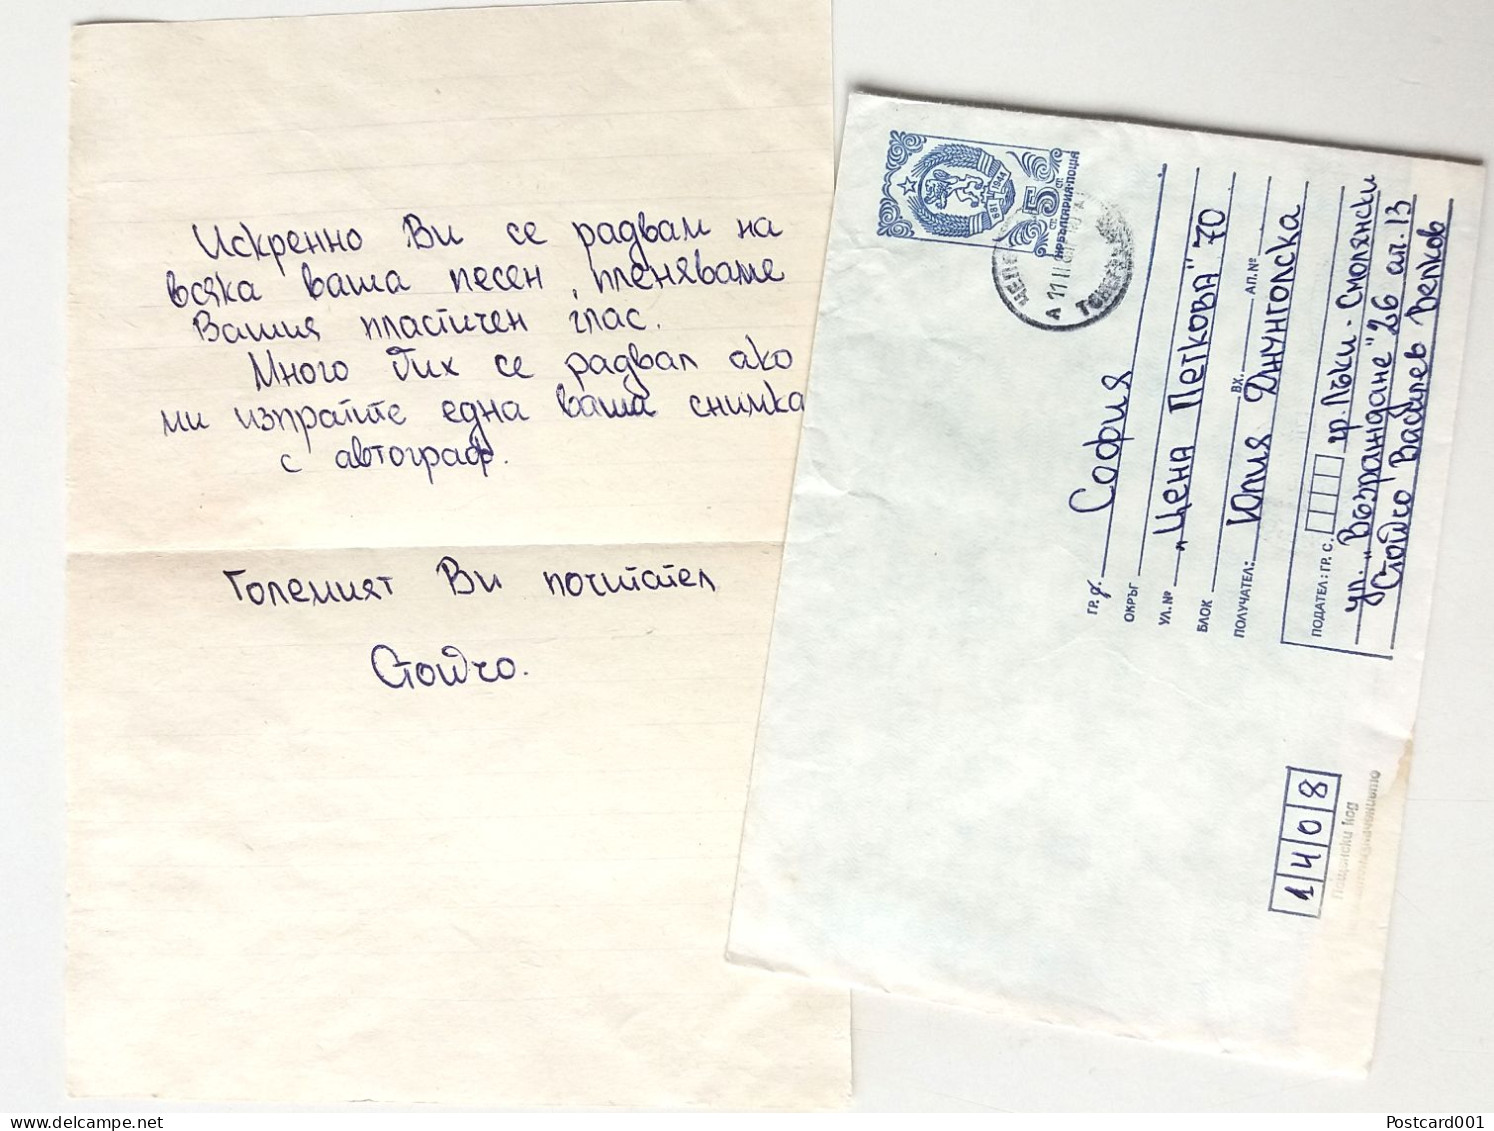 Искренно Ви се радвам на
всяка ваша песен, пленяваме
Вашия пластичен глас.
Много бих се радвал ако
ми изпратите една ваша снимка
с автограф.
Големият Ви почитател
Стойчо.
5 СТ.
СТ.
НРБЪЛГАРИЯ·ПОЩА
681 1944
А 11 II
ГР. София
ОКРЪГ
УЛ. № „Цена Петкова" 70
БЛОК ВХ. АП. №
ПОЛУЧАТЕЛ: Юлия Джунголска
ПОДАТЕЛ: ГР. С. гр. Лъки - Смолянски
ул. „Възраждане" 26 ап. 13
Стойчо Василев Велков
1408
Пощенски код
Postcard001